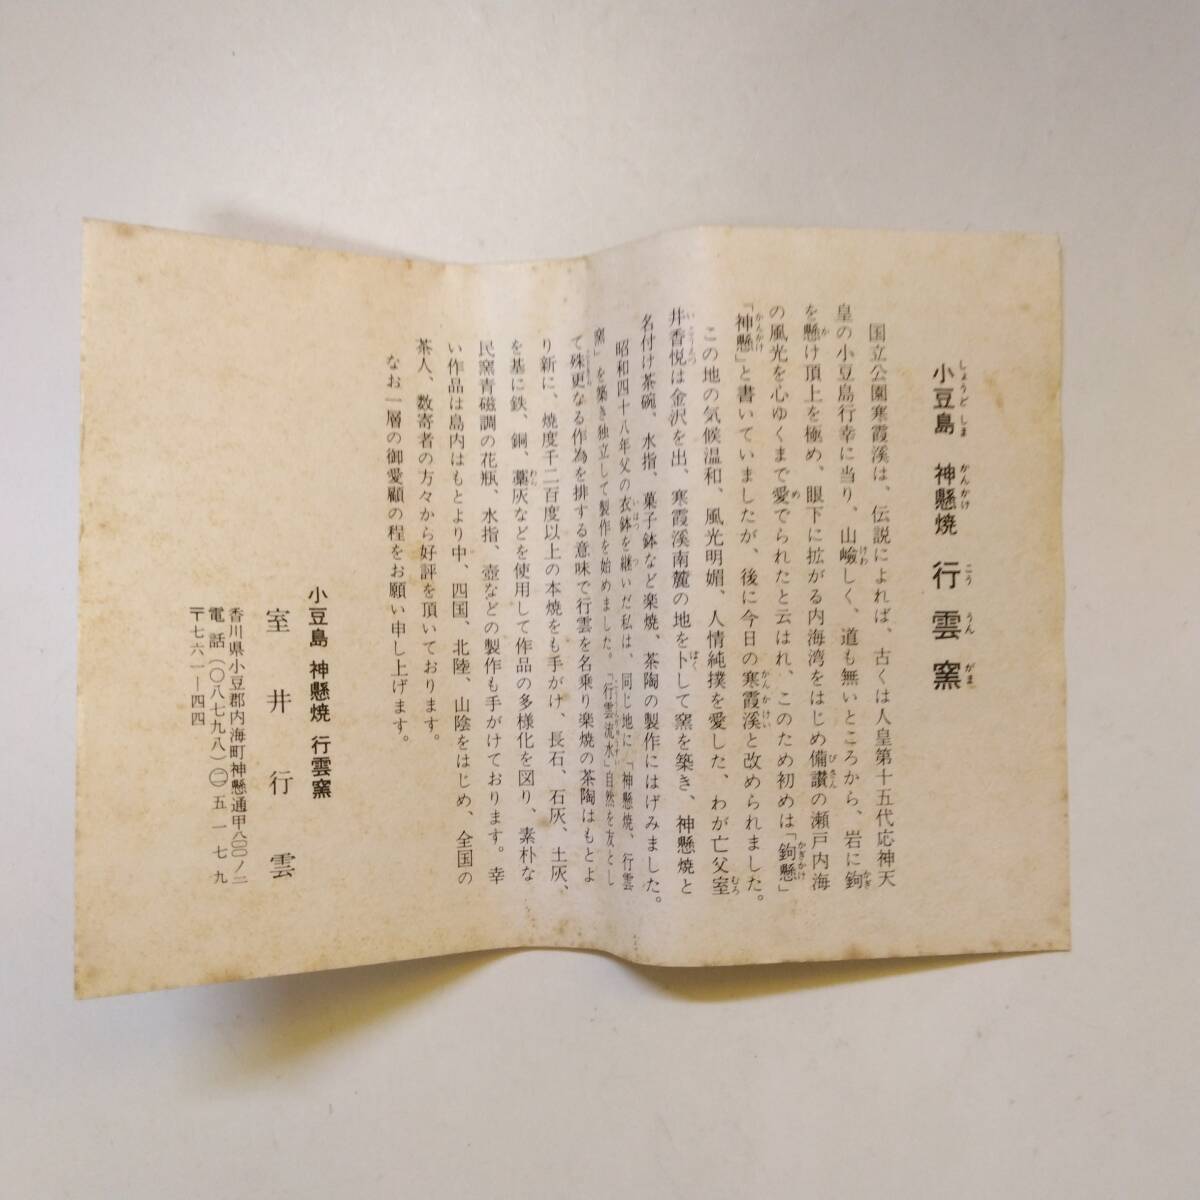 小豆島　神懸焼　行雲窯
国立公園寒霞溪は、伝説によれば、古くは人皇第十五代応神天
皇の小豆島行幸に当り、山嶮しく、道も無いところから、岩に鉤
を懸け頂上を極め、眼下に拡がる内海湾をはじめ備讃の瀬戸内海
の風光を心ゆくまで愛でられたと云はれ、このため初めは「鉤懸」
「神懸」と書いていましたが、後に今日の寒霞溪と改められました。
この地の気候温和、風光明媚、人情純撲を愛した、わが亡父室
井香悦は金沢を出、寒霞溪南麓の地を卜して窯を築き、神懸焼と
名付け茶碗、水指、菓子鉢など楽焼、茶陶の製作にはげみました。
昭和四十八年父の衣鉢を継いだ私は、同じ地に「神懸焼、行雲
窯」を築き独立して製作を始めました。「行雲流水」自然を友とし
て殊更なる作為を排する意味で行雲を名乗り楽焼の茶陶はもとよ
り新に、焼度千二百度以上の本焼をも手がけ、長石、石灰、土灰、
を基に鉄、銅、藁灰などを使用して作品の多様化を図り、素朴な
民窯青磁調の花瓶、水指、壺などの製作も手がけております。幸
い作品は島内はもとより中、四国、北陸、山陰をはじめ、全国の
茶人、数寄者の方々から好評を頂いております。
なお一層の御愛顧の程をお願い申し上げます。
小豆島　神懸焼　行雲窯
室井行雲
香川県小豆郡内海町神懸通甲八〇〇ノ二
電話（〇八七九八）（二）五一七九
〒七六一―四四